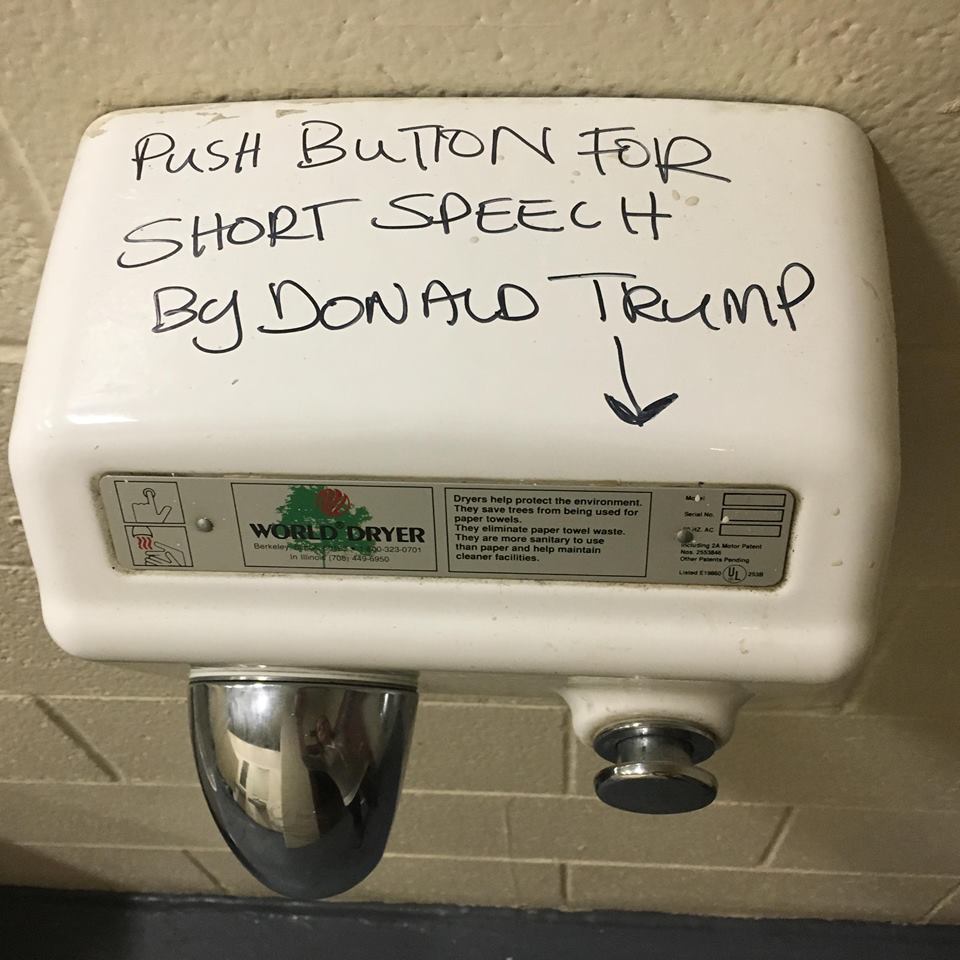 PUSH BUTTON FOR
SHORT SPEECH
BY DONALD TRUMP
WORLD DRYER
Berkeley
323-0701
In Illinois (708) 449-6950
Dryers help protect the environment.
They save trees from being used for
paper towels.
They eliminate paper towel waste.
They are more sanitary to use
than paper and help maintain
cleaner facilities.
Serial No.
HZ. AC
Including 2A Motor Patent
Nos. 2553846
Other Patents Pending
Listed E19860 UL 253B